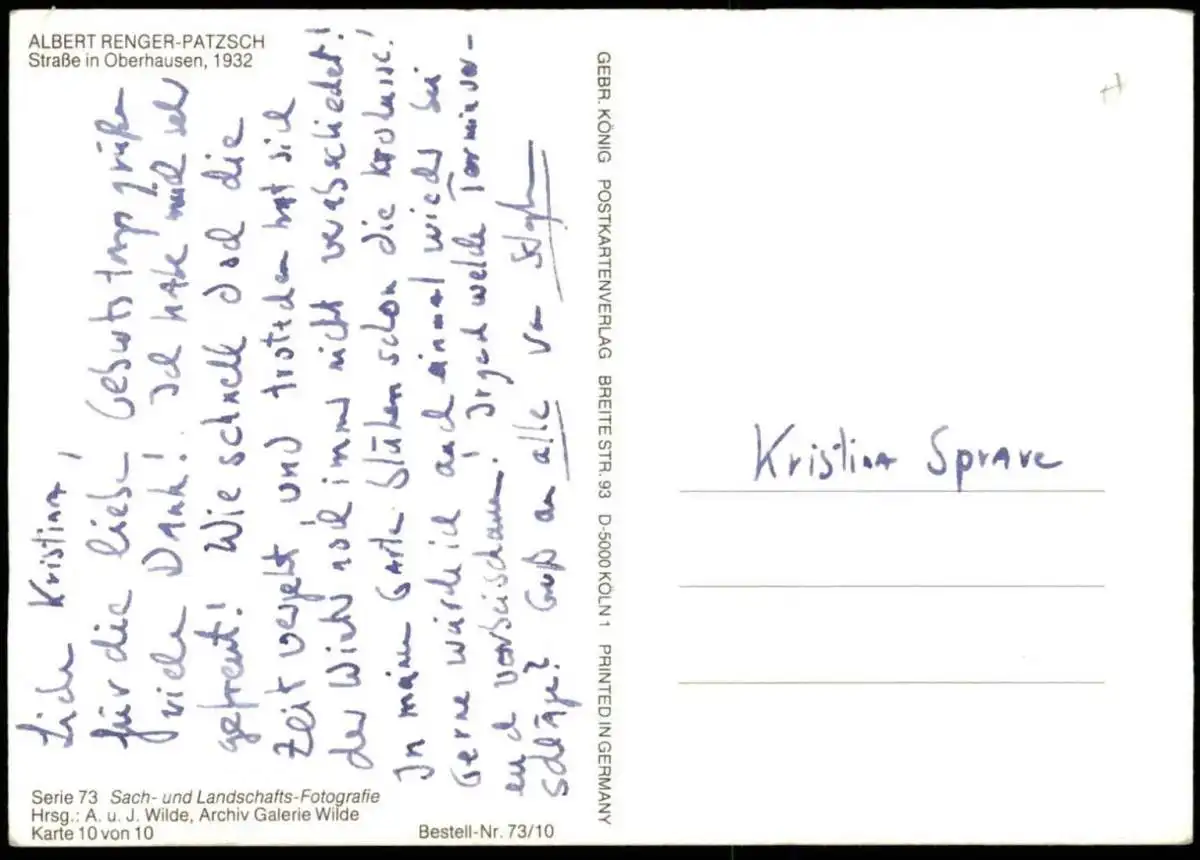 ALBERT RENGER-PATZSCH
Straße in Oberhausen, 1932
Liebe Kristina!
für die lieben Geburtstagsgrüße
vielen Dank! Ich habe mich sehr
gefreut! Wie schnell doch die
Zeit vergeht und trotzdem hat sich
der Winter noch immer nicht verabschiedet!
In meinem Garten blühen schon die Krokusse!
Gerne würde ich auch einmal wieder bei
euch vorbeischauen! Irgendwelche Terminvor-
schläge? Gruß an alle von
Serie 73 Sach- und Landschafts-Fotografie
Hrsg.: A. u. J. Wilde, Archiv Galerie Wilde
Karte 10 von 10
Bestell-Nr. 73/10
GEBR. KÖNIG POSTKARTENVERLAG BREITE STR. 93 D-5000 KÖLN 1 PRINTED IN GERMANY
Kristina Sprave